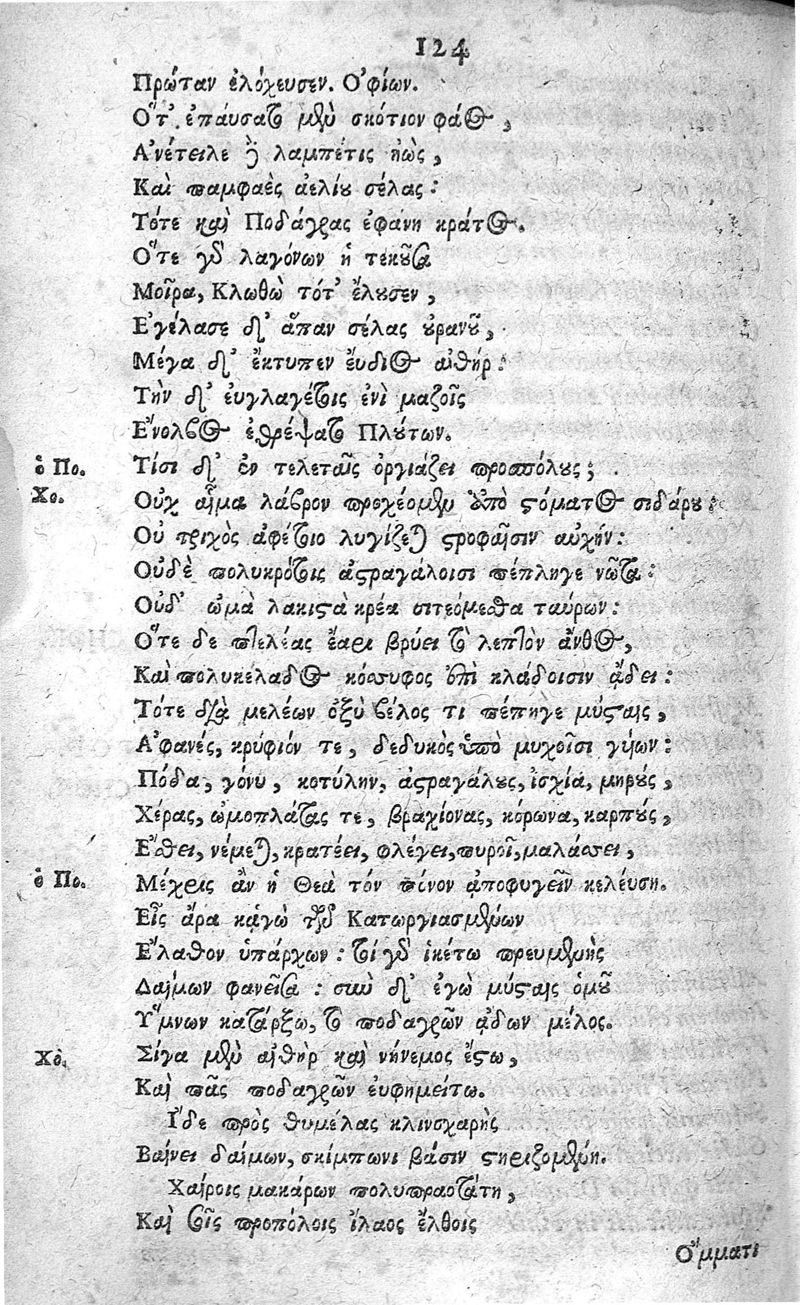 124
Πρώταν ἐλόχευσεν. Ὀφίων.
Ὅτ᾽ ἐπαύσατο μὲν σκότιον φάος,
Ἀνέτειλε δὲ λαμπέτις ἠὼς,
Καὶ παμφαὲς ἀελίου σέλας:
Τότε καὶ Ποδάγρας ἐφάνη κράτος.
Ὅτε γὰρ λαγόνων ἡ τεκοῦσα
Μοῖρα, Κλωθὼ τότ᾽ ἔλουσεν,
Ἐγέλασε δ᾽ ἅπαν σέλας οὐρανοῦ,
Μέγα δ᾽ ἔκτυπεν ἔυδιος αἰθήρ:
Τὴν δ᾽ ἐυγλαγέτοις ἐνὶ μαζοῖς
Ἔνολβος ἐθρέψατο Πλούτων.
ὁ Πο. Τίσι δ᾽ ἐν τελεταῖς ὀργιάζει προσπόλους;
Χο. Οὐχ αἷμα λάβρον προχέομεν ἀπὸ στόματος σιδάρου:
Οὐ τριχὸς ἀφέτοιο λυγίζεται στροφαῖσιν αὐχήν:
Οὐδὲ πολυκρότοις ἀστραγάλοισι πέπληγε νῶτα:
Οὐδ᾽ ὠμὰ λακιστὰ κρέα σιτεόμεθα ταύρων:
Ὅτε δε πτελέας ἔαρι βρύει τὸ λεπτὸν ἄνθος,
Καὶ πολυκέλαδος κόσσυφος ἐπὶ κλάδοισιν ᾄδει:
Τότε διὰ μελέων ὀξὺ βέλος τι πέπηγε μύσταις,
Ἀφανές, κρύφιόν τε, δεδυκὸς ὑπὸ μυχοῖσι γυίων:
Πόδα, γόνυ, κοτύλην, ἀστραγάλους, ἰσχία, μηρούς,
Χέρας, ὠμοπλάτας τε, βραχίονας, κόρωνα, καρπούς,
Ἔσθει, νέμεται, κρατέει, φλέγει, πυροῖ, μαλάσσει,
ὁ Πο. Μέχρις ἂν ἡ Θεὰ τόν πίνον ἀποφυγεῖν κελεύσῃ.
Εἷς ἄρα κᾀγὼ τῶν Κατωργιασμένων
Ἔλαθον ὑπάρχων: τοί γὰρ ἱκέτω πρευμενὴς
Δαίμων φανεῖσα: σὺν δ᾽ ἐγὼ μύσταις ὁμοῦ
Ὕμνων κατάρξω, τὸ ποδαγρῶν ᾄδων μέλος.
Χὸ. Σίγα μὲν αἰθὴρ καὶ νήνεμος ἔστω,
Καὶ πᾶς ποδαγρῶν ἐυφημείτω.
Ἴδε πρὸς θυμέλας κλινοχαρὴς
Βαίνει δαίμων, σκίμπωνι βάσιν στηριζομένη.
Χαίροις μακάρων πολυπραοτάτη,
Καὶ σοῖς προπόλοις ἵλαος ἔλθοις
Ὄμματι